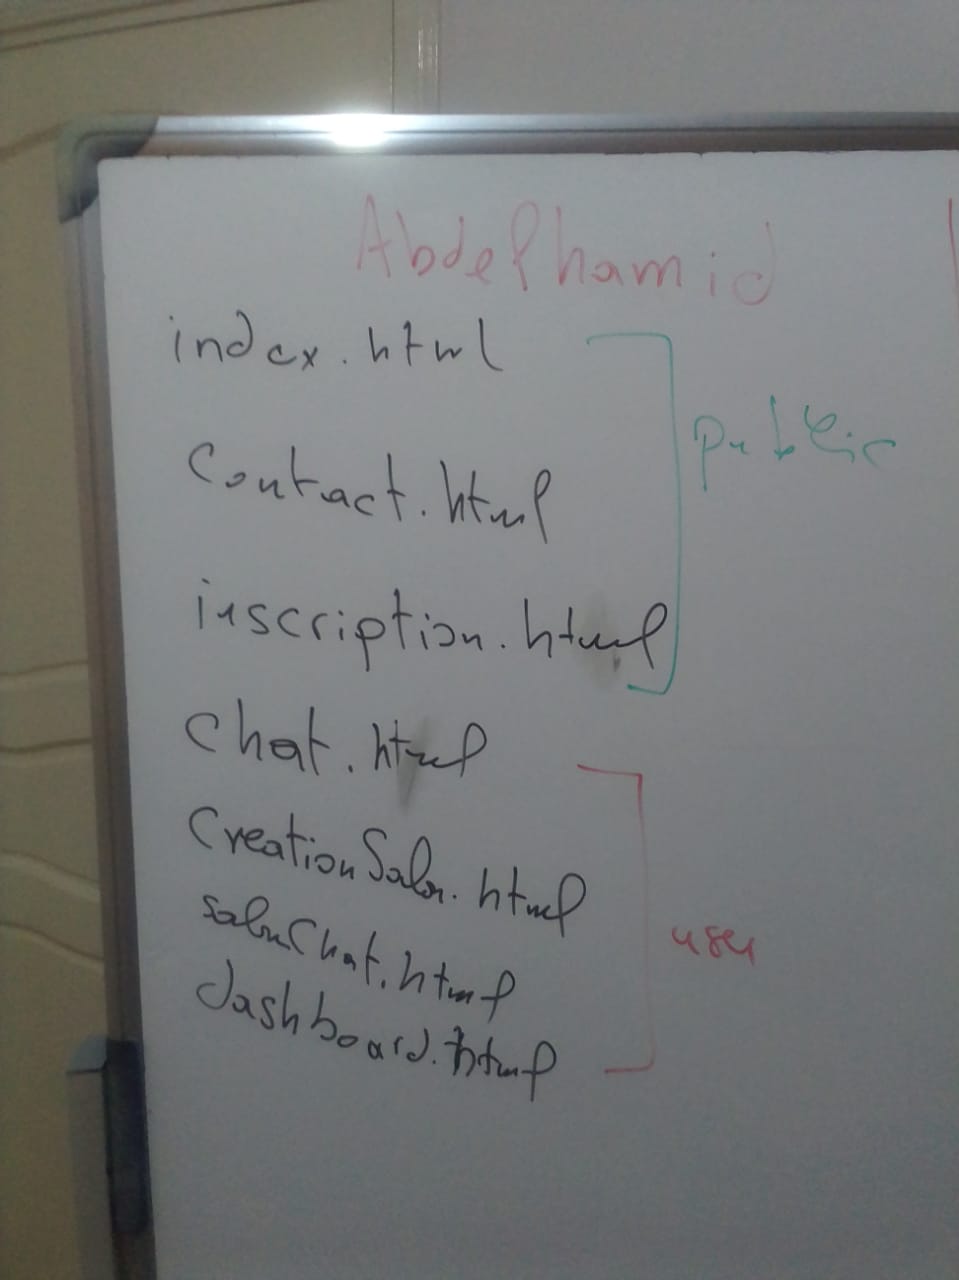 Abdelhamid
index.html
public
Contact.html
inscription.html
Chat.html
CreationSalon.html
user
salonChat.html
dashboard.html